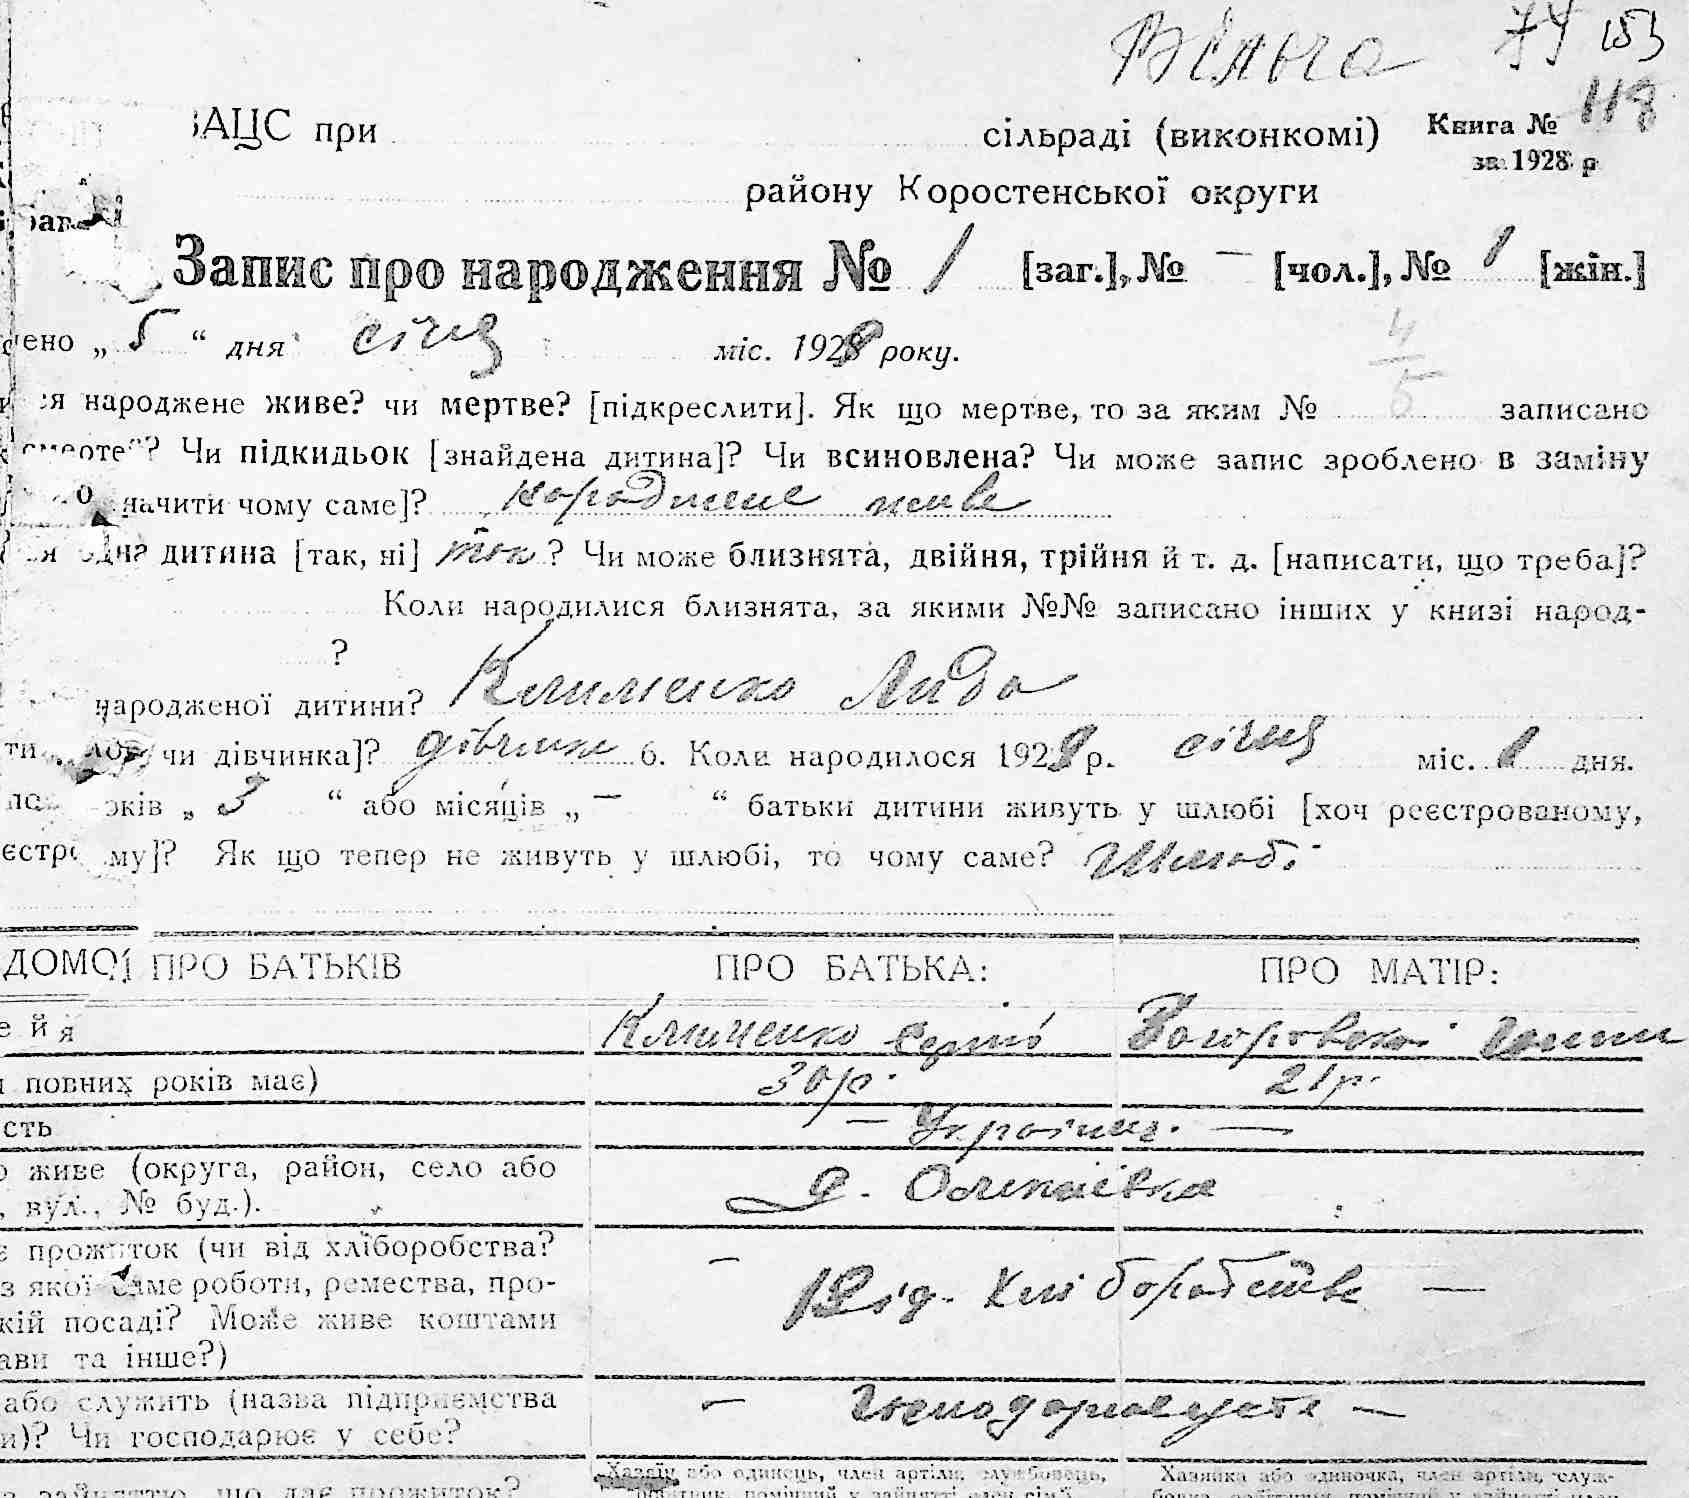 Вільча 74 153
118
ЗАЦС при сільраді (виконкомі) Книга №
за 1928 р
району Коростенської округи
Запис про народження № 1 [заг.], № — [чол.], № 1 [жін.]
чено „ 5 “ дня січня міс. 1929 року.
4
5
ся народжене живе? чи мертве? [підкреслити]. Як що мертве, то за яким № записано
смерте“? Чи підкидьок [знайдена дитина]? Чи всиновлена? Чи може запис зроблено в заміну
начити чому саме]? народжене живе
ся одна дитина [так, ні] так ? Чи може близнята, двійня, трійня й т. д. [написати, що треба]?
Коли народилися близнята, за якими №№ записано інших у книзі народ-
?
народженої дитини? Клименко Лида
ти чи дівчинка]? дівчинка 6. Коли народилося 1929 р. січня міс. 1 дня.
років „ 3 “ або місяців „ — “ батьки дитини живуть у шлюбі [хоч реєстрованому,
єстро му]? Як що тепер не живуть у шлюбі, то чому саме? Шлюбі
ДОМОСТІ ПРО БАТЬКІВ ПРО БАТЬКА: ПРО МАТІР:
ей я Клименко Сергій Загоровська
повних років має) 30р. 21р.
сть — Україн. —
живе (округа, район, село або
, вул., № буд.). Олексіївка
є прожиток (чи від хліборобства?
з якої саме роботи, ремества, про-
кій посаді? Може живе коштами — Від. Хліборобства —
ави та інше?)
або служить (назва підприємства — Господарювати —
и)? Чи господарює у себе?
Хазяїн або одинець, член артіли, службовець, Хазяйка або одиночка, член артіли, служ-
зайняттю, що дає прожиток?